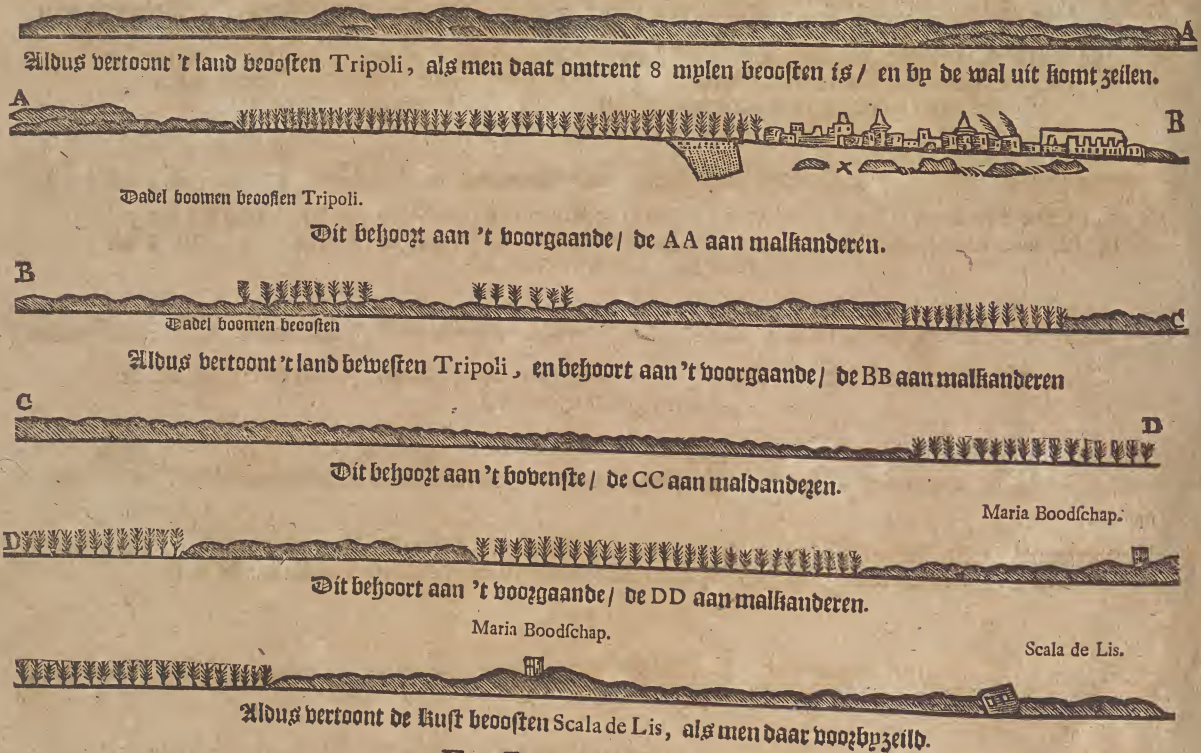 A
Aldus vertoont 't land beooſten Tripoli, als men daat omtrent 8 mylen beooſten is / en by de wal uit komt zeilen.
A
B
x
Dadel boomen beooſten Tripoli.
Dit behoort aan 't voorgaande / de AA aan malkanderen.
B
C
Dadel boomen beooſten
Aldus vertoont 't land beweſten Tripoli, en behoort aan 't voorgaande / de BB aan malkanderen
C
D
Dit behoort aan 't bovenſte / de CC aan maldanderen.
Maria Boodſchap.
D
Dit behoort aan 't voorgaande / de DD aan malkanderen.
Maria Boodſchap.
Scala de Lis.
Aldus vertoont de kuſt beooſten Scala de Lis, als men daar voorbyzeild.